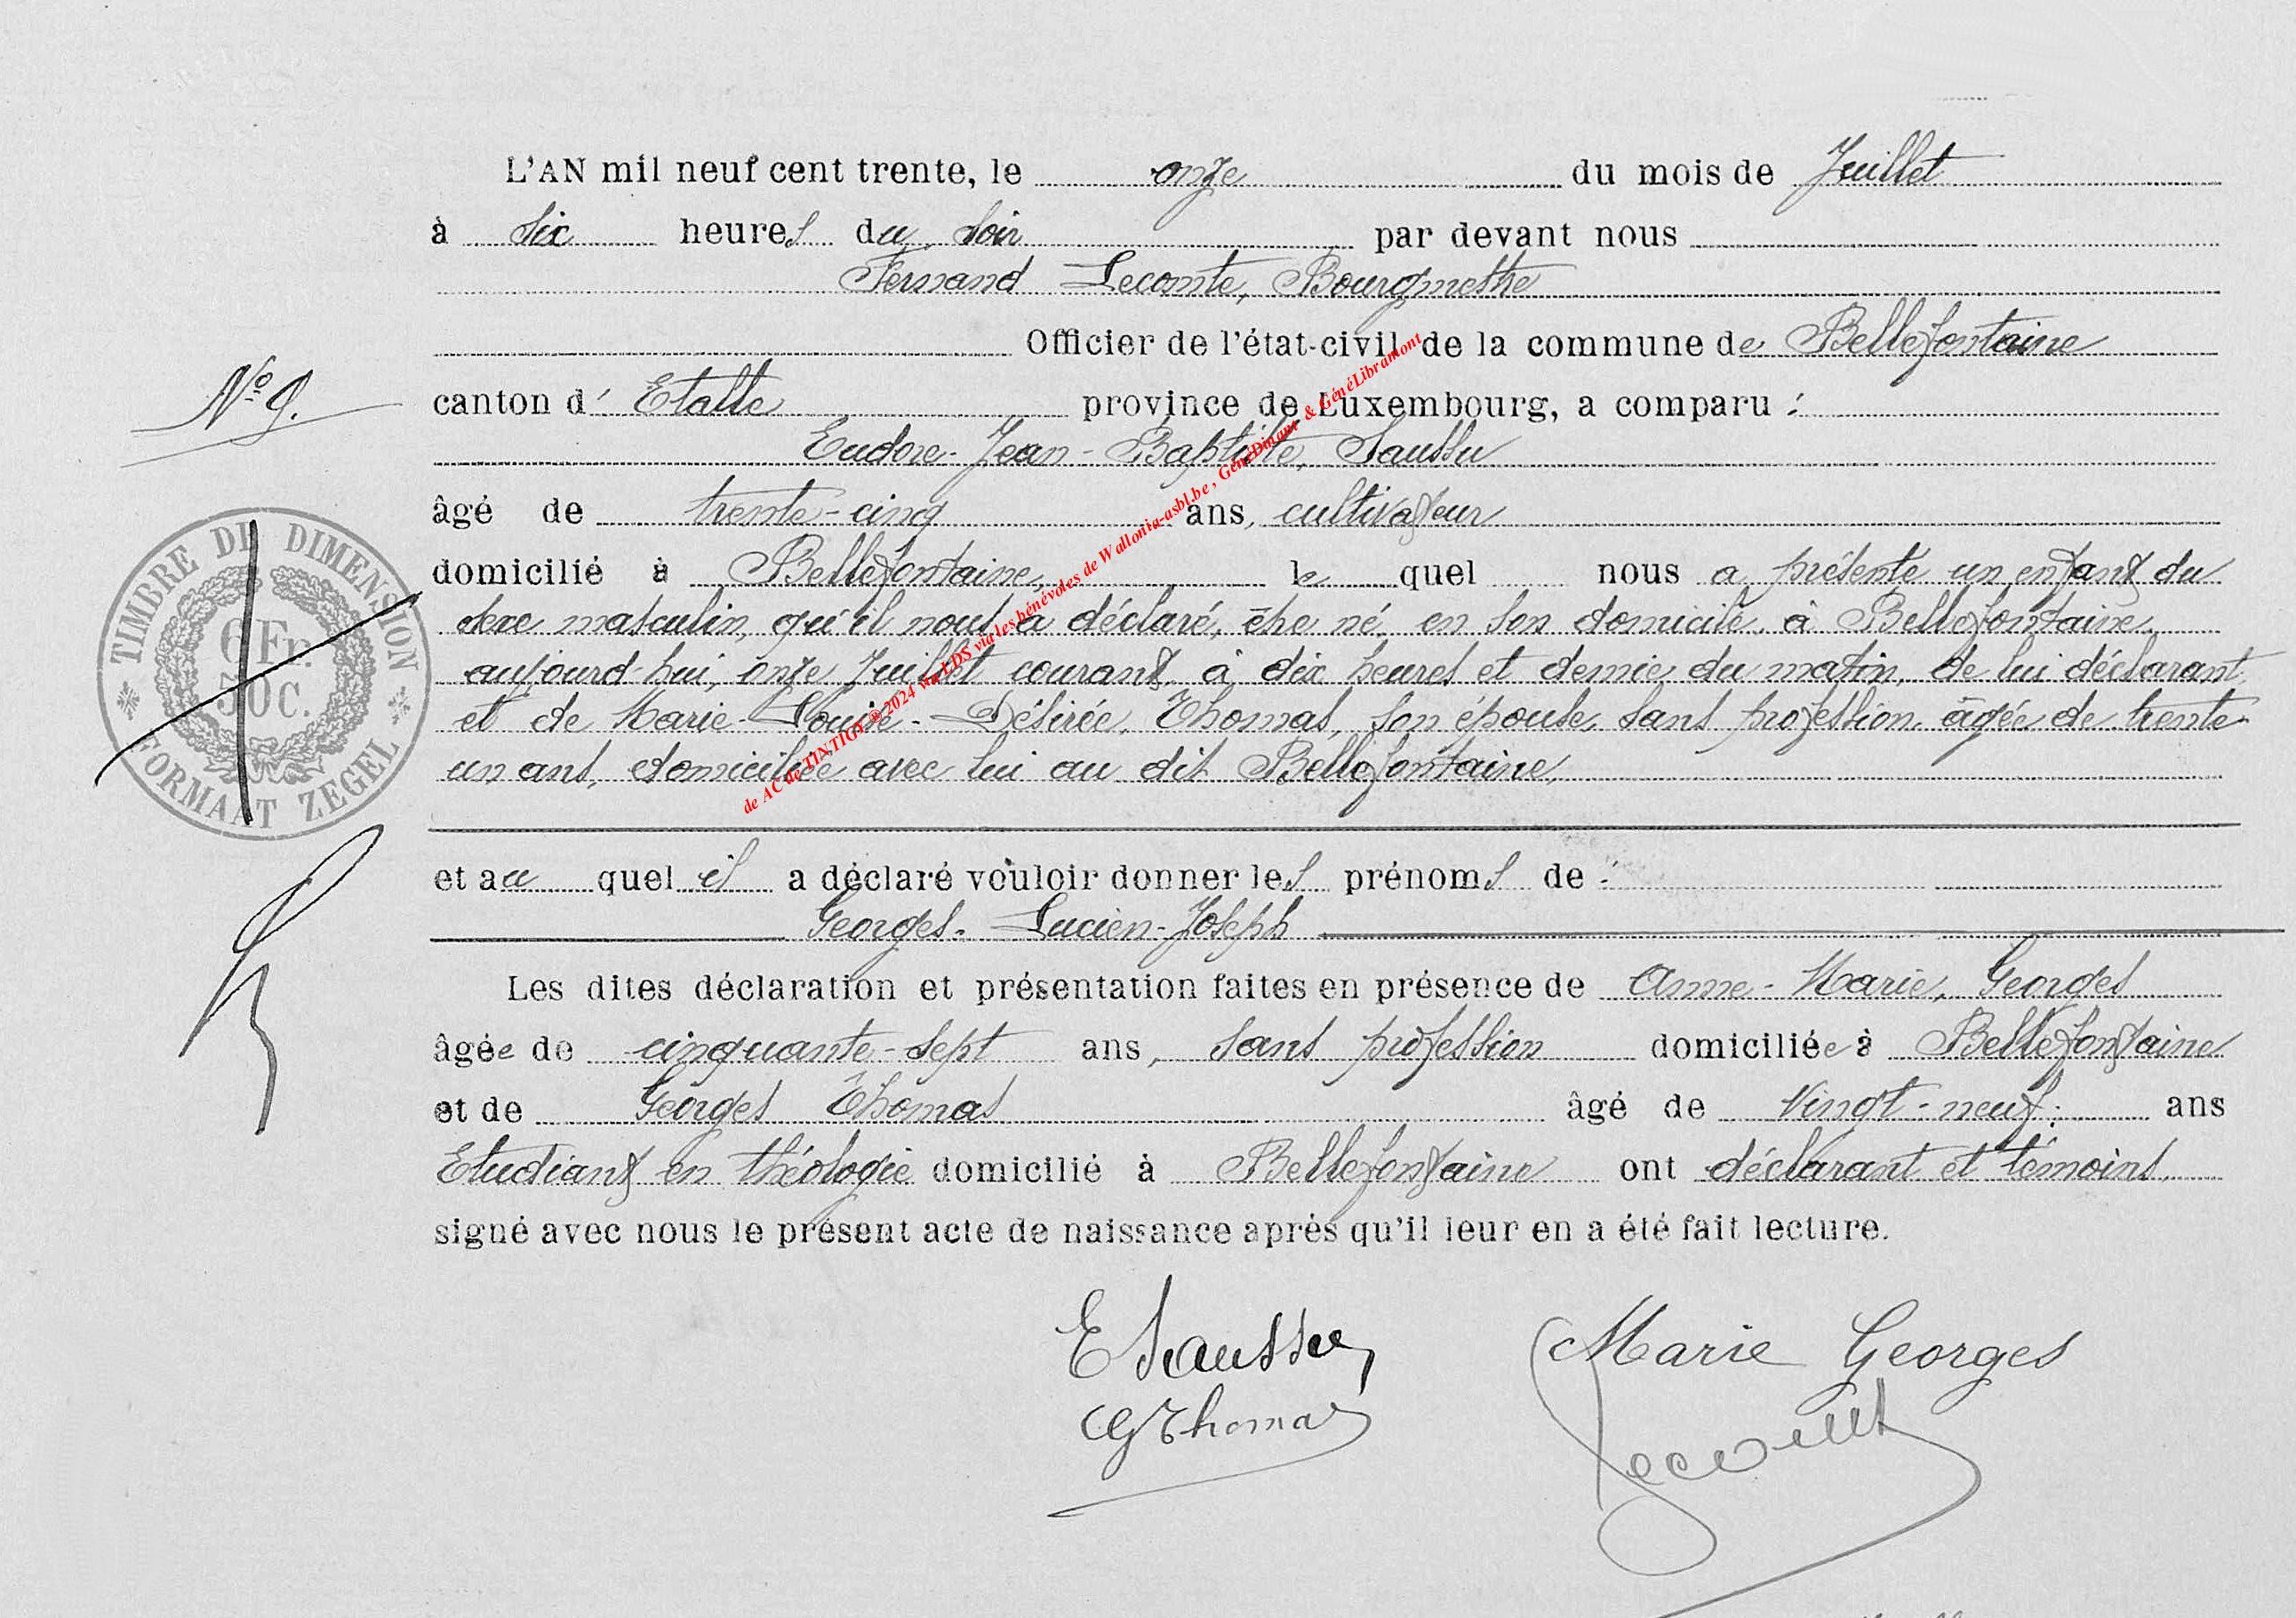 L'AN mil neuf cent trente, le onze du mois de Juillet
à six heures du soir par devant nous
Fernand Leconte, Bourgmestre
Officier de l'état-civil de la commune de Bellefontaine
N° 9.
canton d' Etalle province de Luxembourg, a comparu :
Eudore-Jean-Baptiste, Saussu
âgé de trente-cinq ans, cultivateur
domicilié à Bellefontaine, le quel nous a présenté un enfant du
sexe masculin, qu'il nous a déclaré, être né, en son domicile, à Bellefontaine,
aujourd'hui, onze Juillet courant, à dix heures et demie du matin, de lui déclarant,
et de Marie-Louise-Désirée, Thomas, son épouse, sans profession, âgée de trente-
un ans, domiciliée avec lui au dit Bellefontaine,
TIMBRE DE DIMENSION
6 Fr.
50 C.
FORMAAT ZEGEL
et au quel il a déclaré vouloir donner les prénoms de :
Georges-Lucien-Joseph
Les dites déclaration et présentation faites en présence de Anne-Marie, Georges
âgée de cinquante-sept ans, sans profession domiciliée à Bellefontaine
et de Georges Thomas âgé de vingt-neuf ans
Etudiant en théologie domicilié à Bellefontaine ont déclarant et témoins,
signé avec nous le présent acte de naissance après qu'il leur en a été fait lecture.
E Saussu Marie Georges
G Thomas
de AC de TINTIGY © 2024 via LDS via les bénévoles de Wallonia-asbl.be , GénéDinant & GénéLibramont